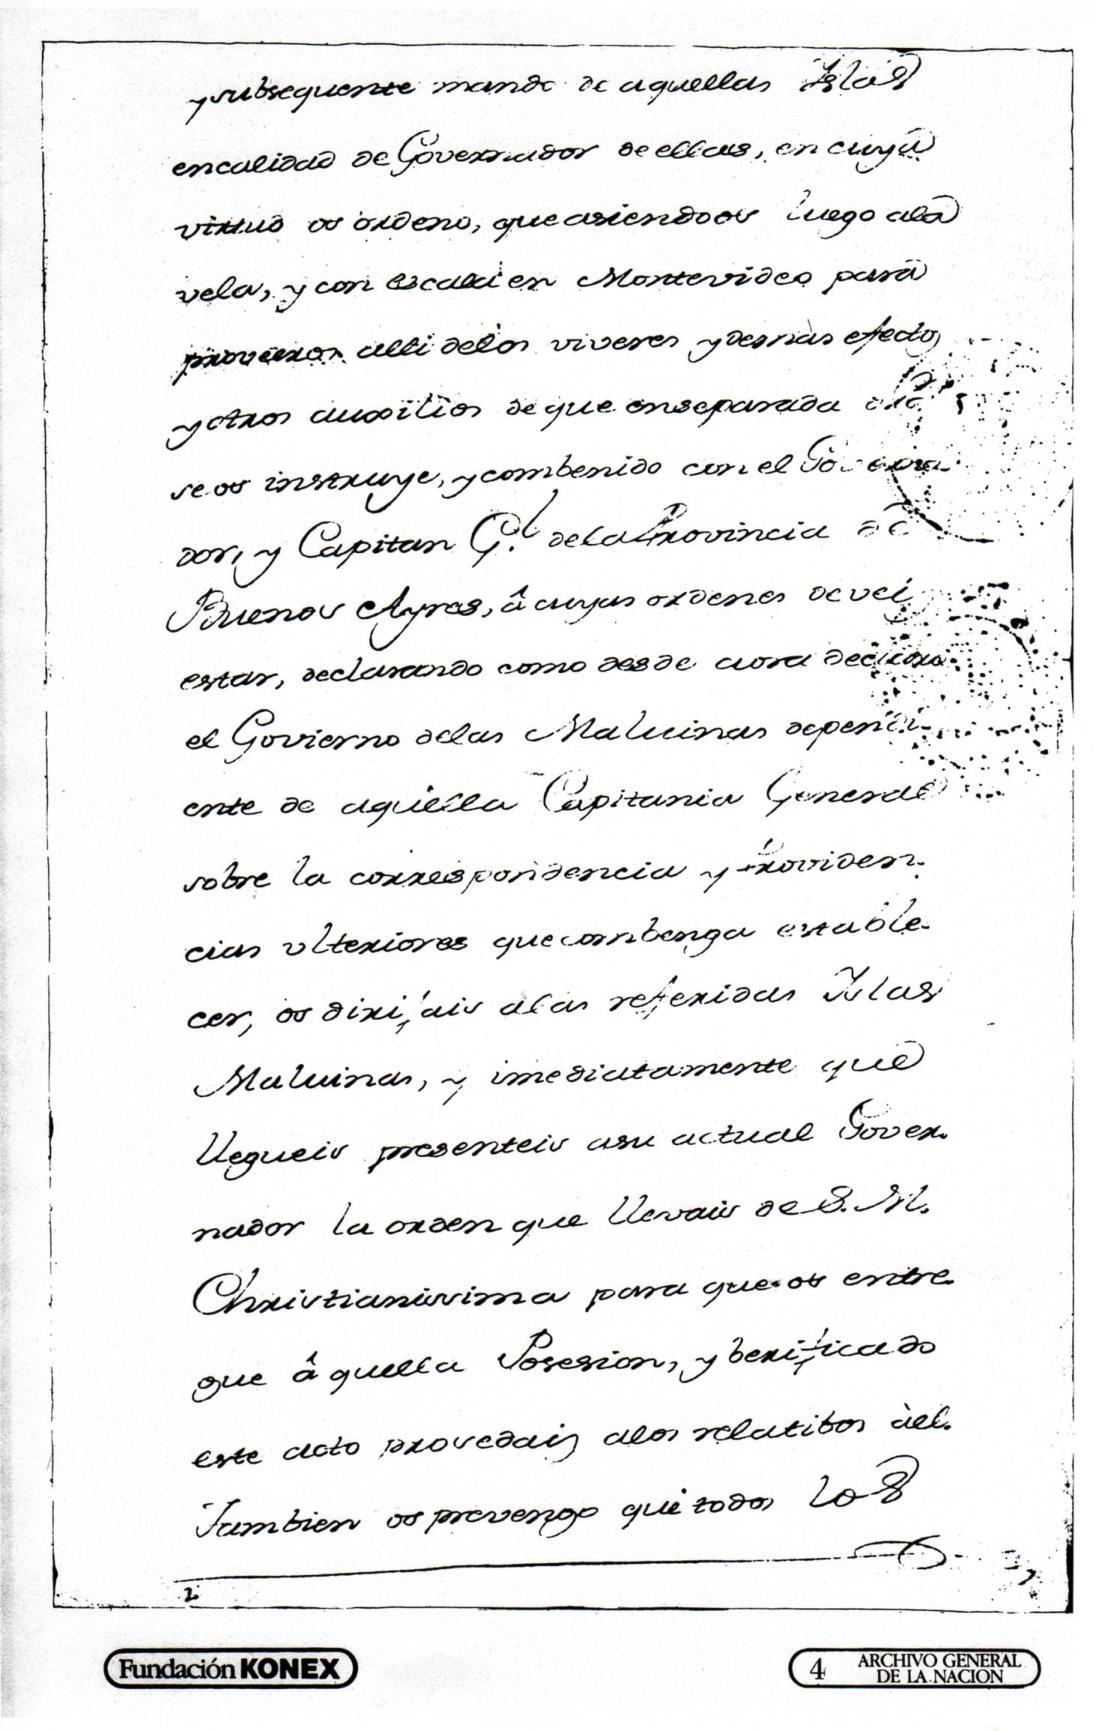 y subsequente mando de aquellas Yslas
en calidad de Governador de ellas, en cuya
virtud os ordeno, que asiendoos luego ala
vela, y con escala en Montevideo para
proveeros alli delos viveres y demas efectos
y otros auxilios de que enseparada
se os instruye, y combenido con el Governa
dor, y Capitan G.l dela Provincia de
Buenos Ayres, â cuyas ordenes deveis
estar, declarando como desde aora declaro
el Govierno delas Maluinas dependi
ente de aquella Capitania General
sobre la correspondencia y Providen.
cias ulteriores que combenga estable-
cer, os dirijais alas referidas Yslas
Maluinas, y imediatamente que
llegueis presenteis asu actual Gover.
nador la orden que llevais de S. M.
Christianissima para que os entre
gue âquella Posesion, y berificado
este acto provedais alos relatibos àèl.
Tambien os prevengo que todos los
2
Fundación KONEX
4 ARCHIVO GENERAL
DE LA NACION